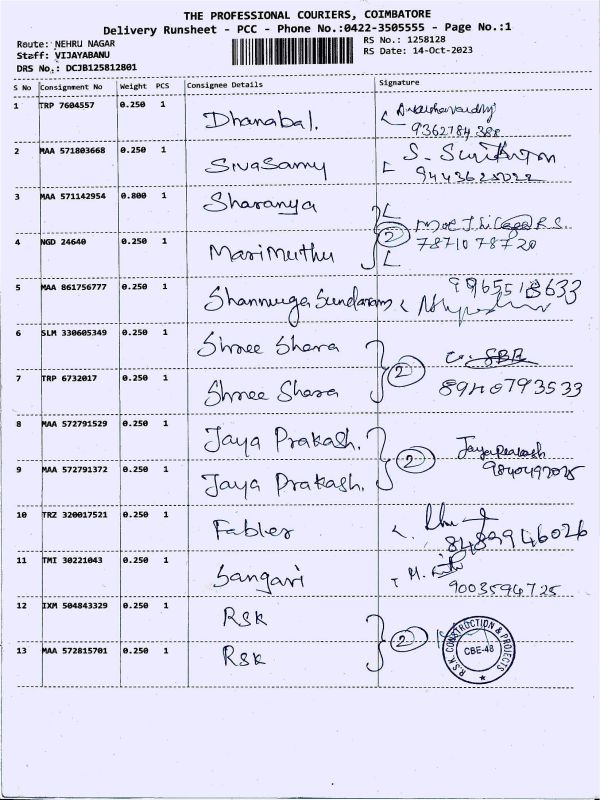 THE PROFESSIONAL COURIERS, COIMBATORE
Delivery Runsheet - PCC - Phone No.:0422-3505555 - Page No.:1
Route: NEHRU NAGAR
RS No.: 1258128
Staff: VIJAYABANU
RS Date: 14-Oct-2023
DRS No.: DCJB125812801
S No Consignment No Weight PCS Consignee Details Signature
1 TRP 7604557 0.250 1 Dhanabal.
9362784388
2 MAA 571803668 0.250 1 Sivasamy S.
9443625022
3 MAA 571142954 0.800 1 Sharanya
2 R.S.
4 NGD 24640 0.250 1 Marimuthu 7871078720
5 MAA 861756777 0.250 1 Shanmuga Sundaram
6 SLM 330605349 0.250 1 Shree Shara
2
7 TRP 6732017 0.250 1 Shree Shara 8940793533
8 MAA 572791529 0.250 1 Jaya Prakash. Jayaprakash
2
9 MAA 572791372 0.250 1 Jaya Prakash. 9840497025
10 TRZ 320017521 0.250 1 Fabler
8489946026
11 TMI 30221043 0.250 1 Sangavi M.
9003594725
12 IXM 504843329 0.250 1 RSK
2
13 MAA 572815701 0.250 1 RSK
R.S.K. CONSTRUCTION & PROJECTS
CBE-48